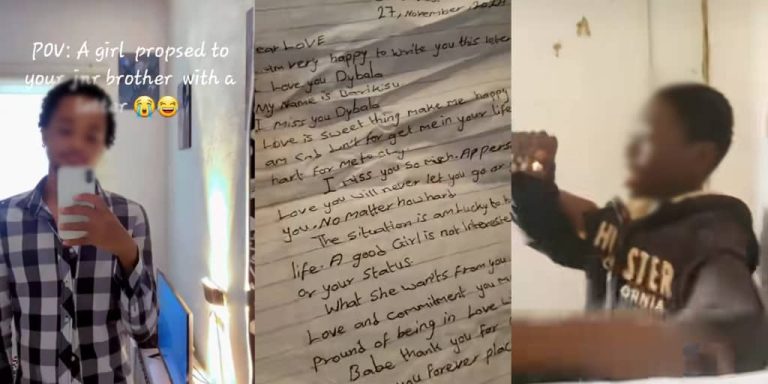 POV: A girl propsed to
your jnr brother with a
😭😂
27, November
ear LOVE
am very happy to write you this
I Love you Dybala
My Name is
I miss you Dybala
Love is sweet thing make me happy
am Sad don't for get me in your life
hart for me to cry.
I miss you so much. A
Love you will never let you go or
you. No matter how hard
The situation is am Lucky to
life. A good Girl is not
or your status.
What she wants from you
Love and commitment you
Pround of being in Love
Babe thank you for
you forever
STER